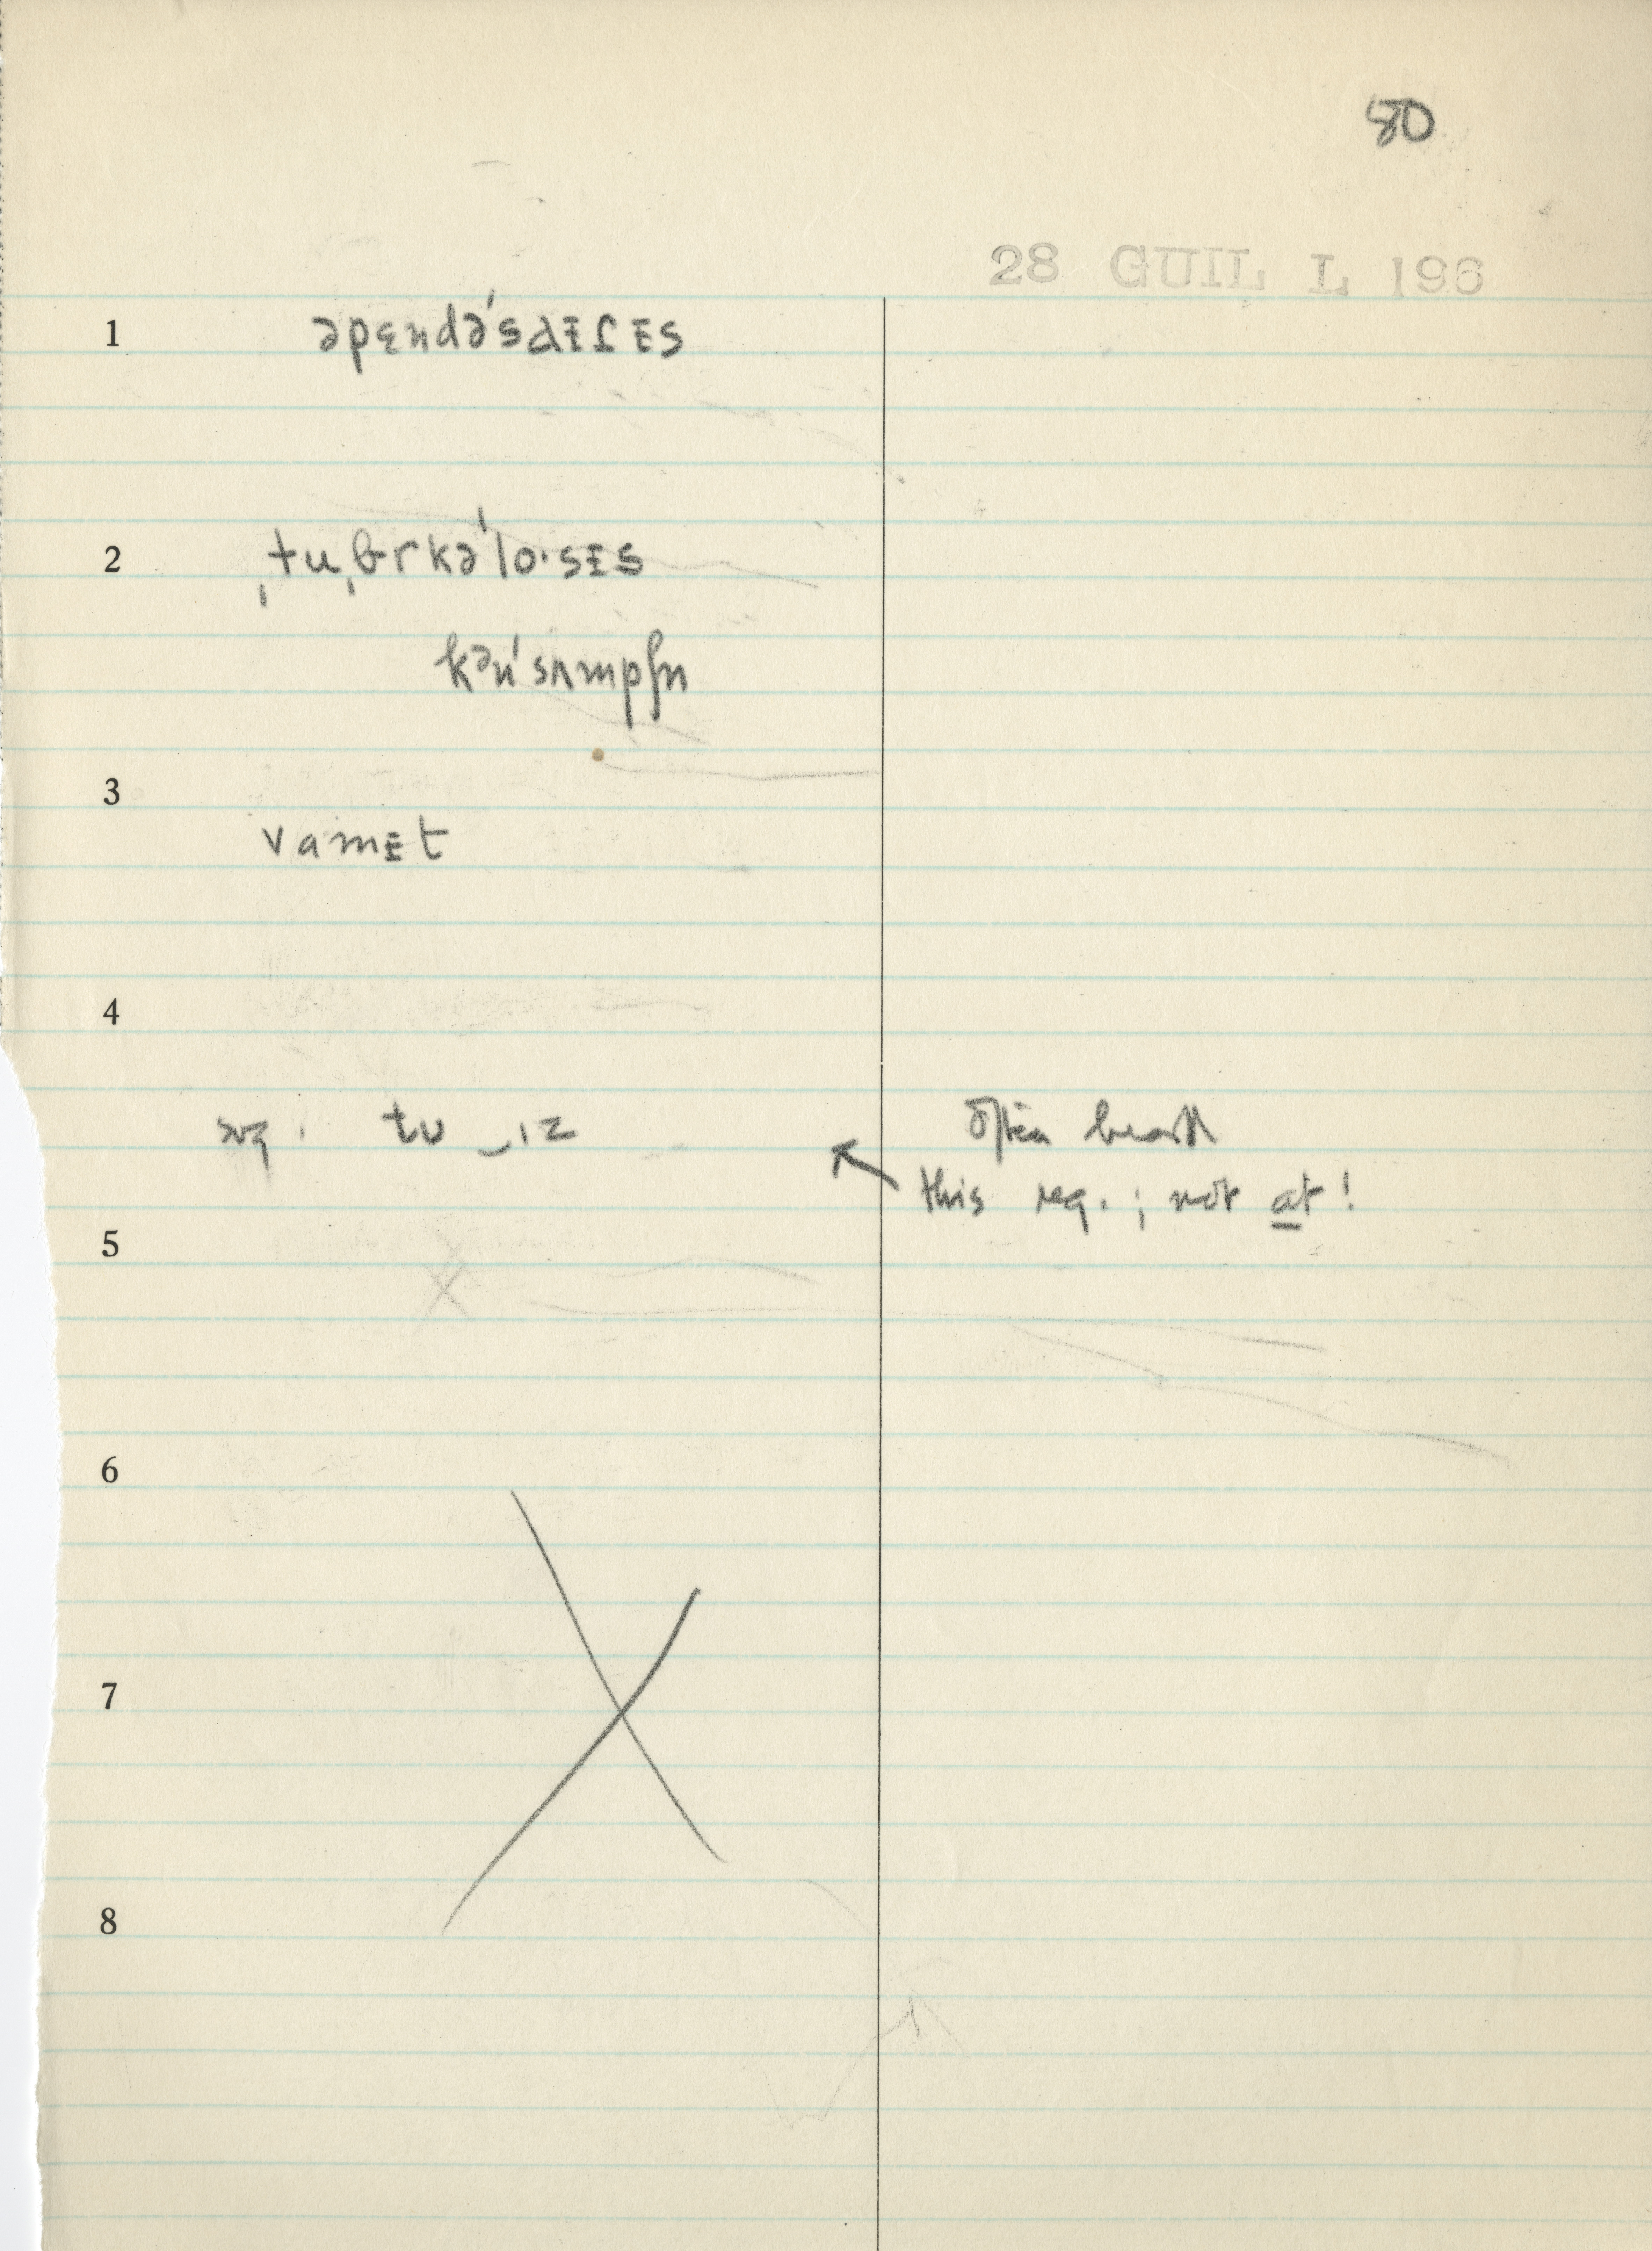 80
28 GUIL L 196
1 əpɛndə'sɑɪſɪs
2 ˌtuˌbrkə'lo·sɪs
kən'sʌmpʃn
3
vamɪt
4
tu ‿ɪz
often heard
this reg. ; not at !
5
6
7
8